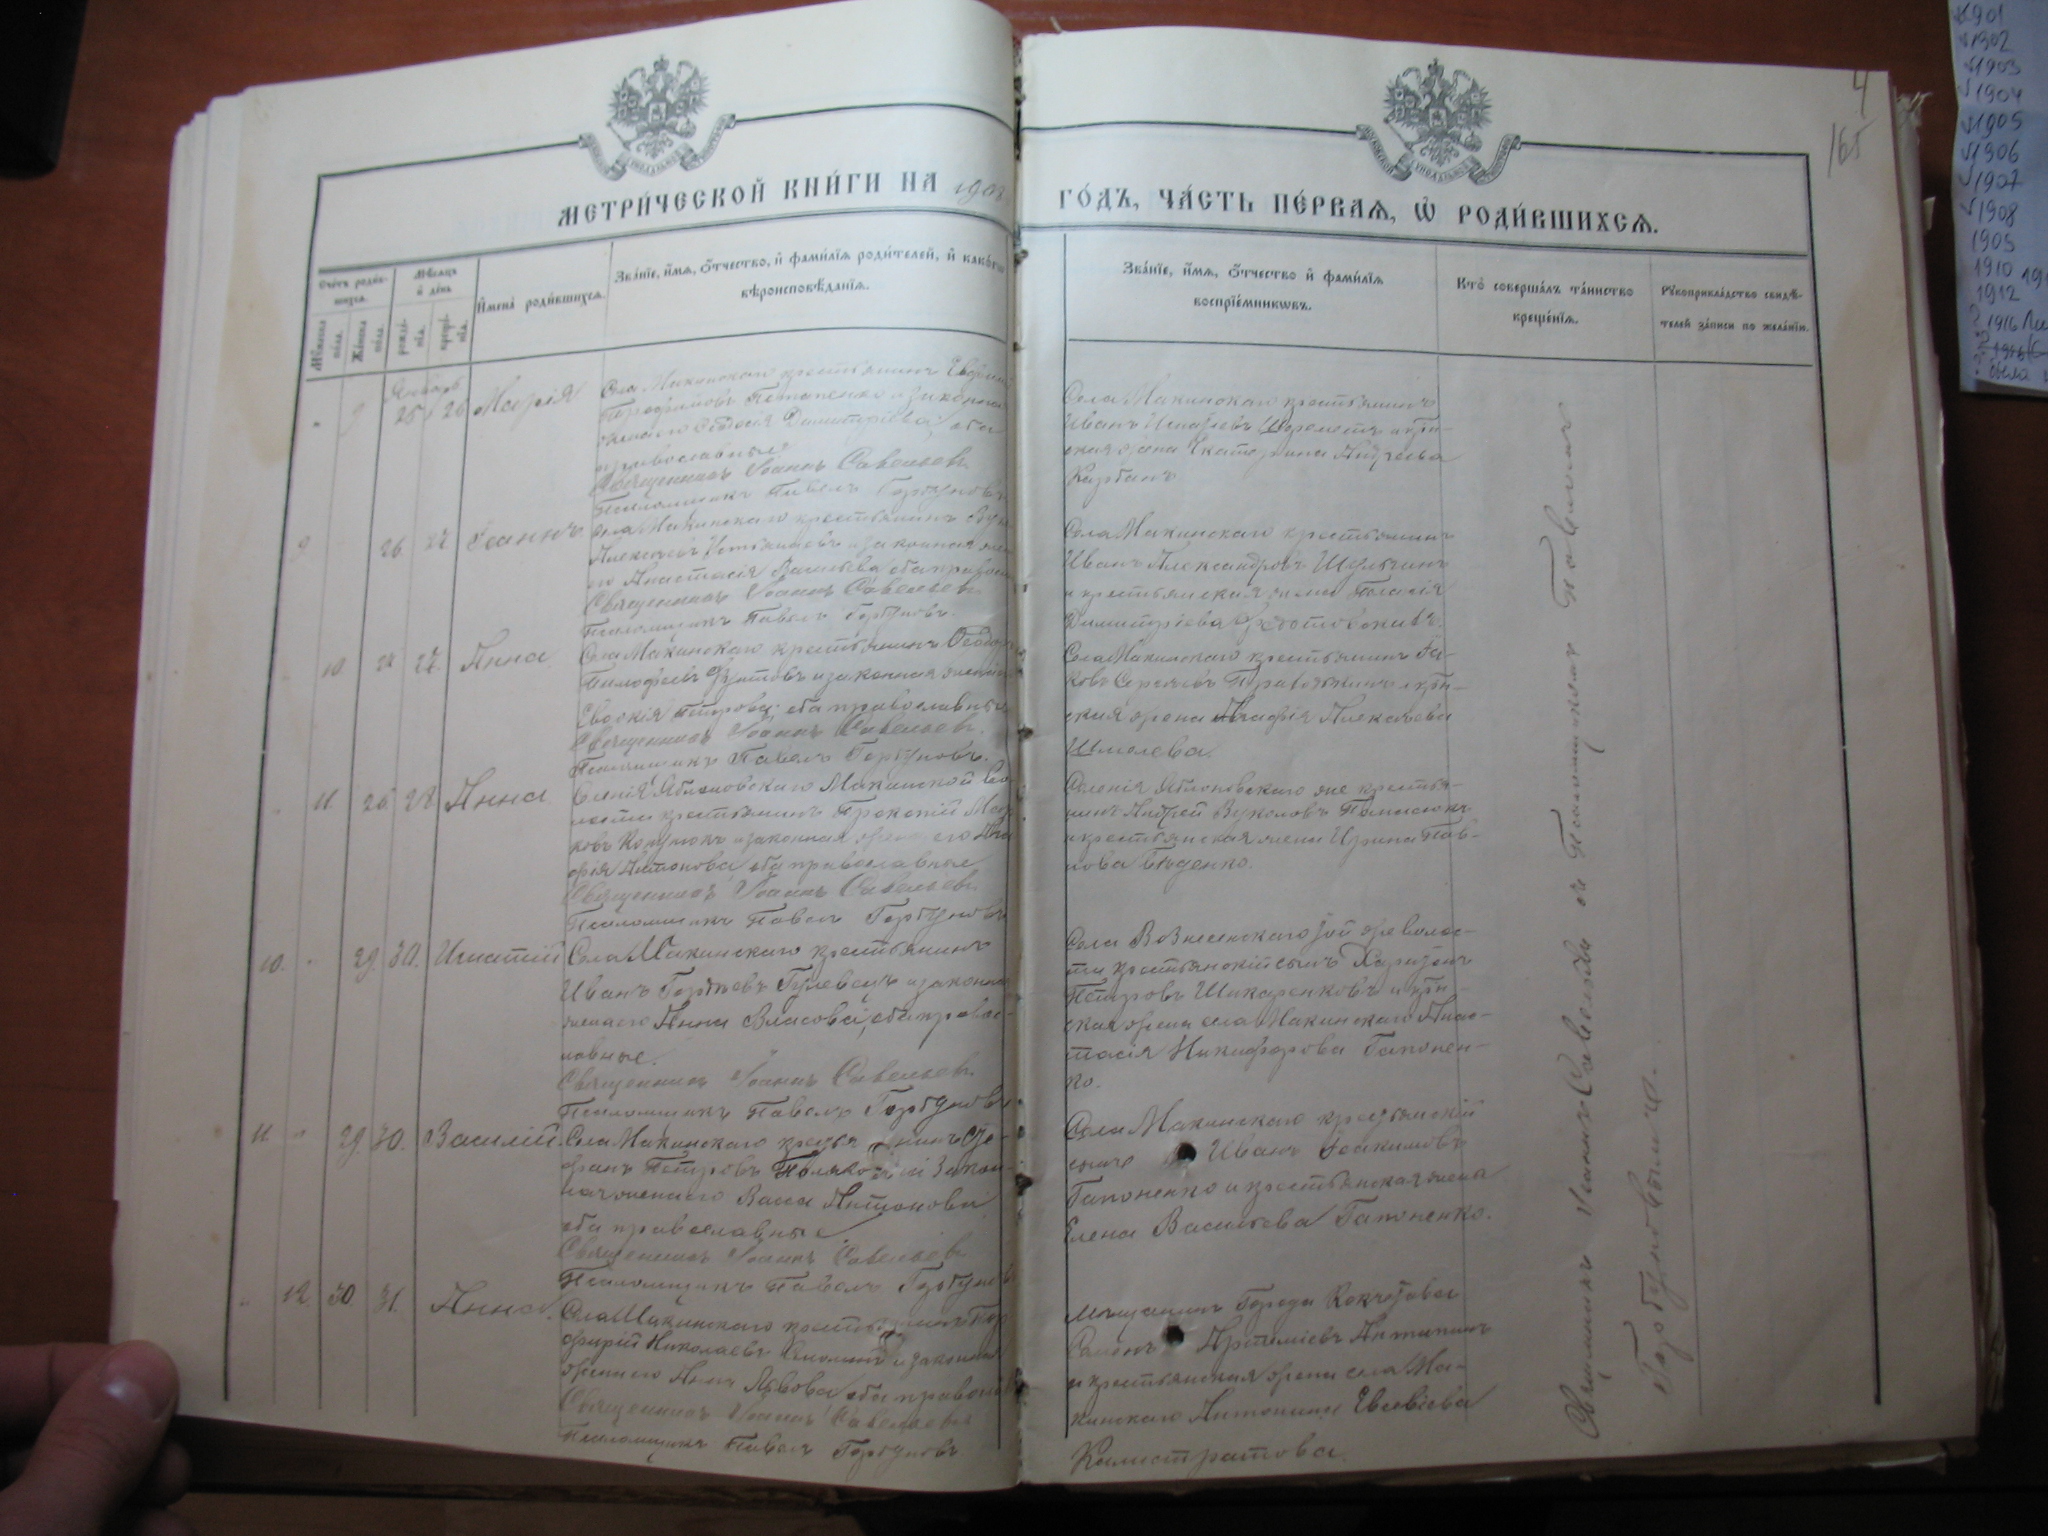 МЕТРИ́ЧЕСКОЙ КНИ́ГИ НА 190
ГО́ДЪ, ЧА́СТЬ ПЕ́РВАѦ, Ѿ РОДИ́ВШИХСѦ.
4
165
Сче́тъ роди́в-
шихсѧ.
Мꙋ́жеска по́ла.
Же́нска по́ла.
Мѣ́сѧцъ и҆ де́нь
рожде́-
нїѧ.
креще́-
нїѧ.
И҆мена̀ роди́вшихсѧ.
Зва́нїе, и҆́мѧ, ѻ҆́тчество, и҆ фами́лїѧ роди́телей, и҆ како́гѡ
вѣроисповѣ́данїѧ.
Зва́нїе, и҆́мѧ, ѻ҆́тчество и҆ фами́лїѧ
воспрїе́мникѡвъ.
Кто̀ соверша́лъ та́инство
креще́нїѧ.
Рꙋкоприкла́дство свидѣ́-
телей за́писи по жела́нїю.
Январь
9 25 26 Марія
Села Макинскаго крестьянинъ
Потапенко и законная
жена его Феодосія Димитріева, оба
православные
Священникъ Іоаннъ Савельевъ
Псаломщикъ Павелъ Горбуновъ
Села Макинскаго крестьянинъ
Иванъ Шереметъ и кре-
ская жена Екатерина Андреева
Курбанъ
9 26 27 Іоаннъ
Села Макинскаго крестьянинъ
Алексѣевъ и законная же-
на его Анастасія Васильева оба правосл
Священникъ Іоаннъ Савельевъ
Псаломщикъ Павелъ Горбуновъ.
Села Макинскаго крестьянинъ
Иванъ Александровъ Шульгинъ
и крестьянская жена Пелагія
Димитріева
10 27 Анна
Села Макинскаго крестьянинъ Ѳеодоръ
Тимофеевъ и законная жена его
Евдокія Петрова, оба православные
Священникъ Іоаннъ Савельевъ.
Псаломщикъ Павелъ Горбуновъ.
Села Макинскаго крестьянинъ Іа-
ковъ Сергѣевъ и кре-
ская жена Агафія Алексѣева
Шмолева.
11 26 28 Анна
Селенія Яблоновскаго Макинской во-
лости крестьянинъ Прокопій Мар-
ковъ и законная жена его Ага-
фія Антонова, оба православные
Священникъ Іоаннъ Савельевъ
Псаломщикъ Павелъ Горбуновъ
Селенія Яблоновскаго же крестья-
нинъ Андрей Вуколовъ Панасюкъ
и крестьянская жена Ирина Пав-
лова
10. 29. 30. Игнатій
Села Макинскаго крестьянинъ
Иванъ Гордѣевъ Гулевецъ и законная
жена его Анна Власова, оба правос-
лавные.
Священникъ Іоаннъ Савельевъ.
Псаломщикъ Павелъ Горбуновъ
Села Вознесенскаго той же волос-
ти крестьянскій сынъ Харитонъ
Петровъ Шикаренковъ и кре-
ская жена села Макинскаго Анас-
тасія Никифорова Гапонен-
ко.
11 29. 30. Василій
Села Макинскаго крестьянинъ Сте-
фанъ Петровъ и закон-
ная жена его Васса Антонова
оба православные
Священникъ Іоаннъ Савельевъ
Псаломщикъ Павелъ Горбуновъ
Села Макинскаго крестьянскій
сынъ Иванъ Іоакимовъ
Гапоненко и крестьянская жена
Елена Васильева Гапоненко.
12 30. 31. Анна
Села Макинскаго крестьянинъ Пор-
фирій Николаевъ и законная
жена его Анна Львова оба правосл
Священникъ Іоаннъ Савельевъ
Псаломщикъ Павелъ Горбуновъ
Мѣщанинъ Города Кокчетава
Артеміевъ Антипинъ
и крестьянская жена села Ма-
кинскаго Антонина Евсевіева
Калистратова.
Священникъ Іоаннъ Савельевъ съ Псаломщикомъ Павломъ
Горбуновымъ.
1901
1902
1903
1904
1905
1906
1907
1908
1905
1910
1912
1916